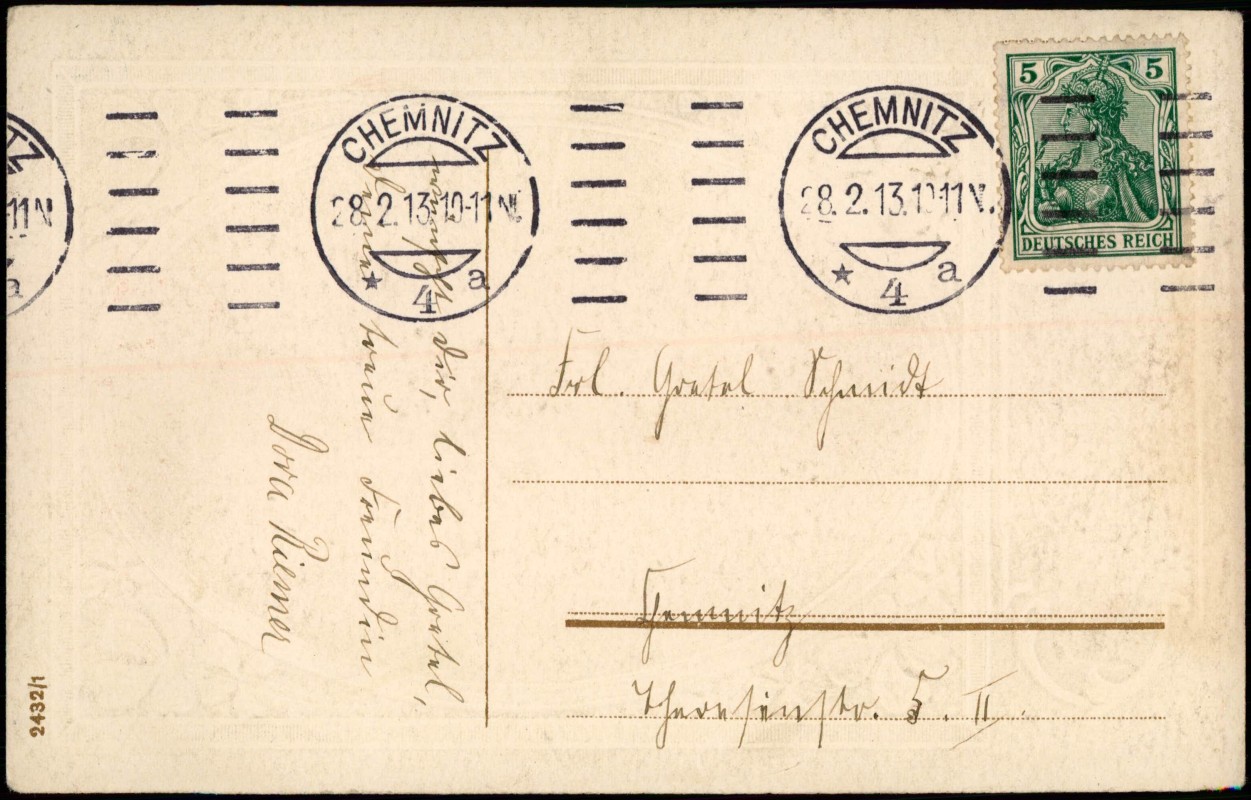 CHEMNITZ
28.2.13.10-11 N.
* 4 a
CHEMNITZ
28.2.13.10-11 N.
* 4 a
TZ
-11 N
a
5 5
DEUTSCHES REICH
wünscht Dir, liebes Gretel,
Deine treue Freundin
Dora Riemer
Frl. Gretel Schmidt
Chemnitz
Theresenstr. 5. II.
2432/1